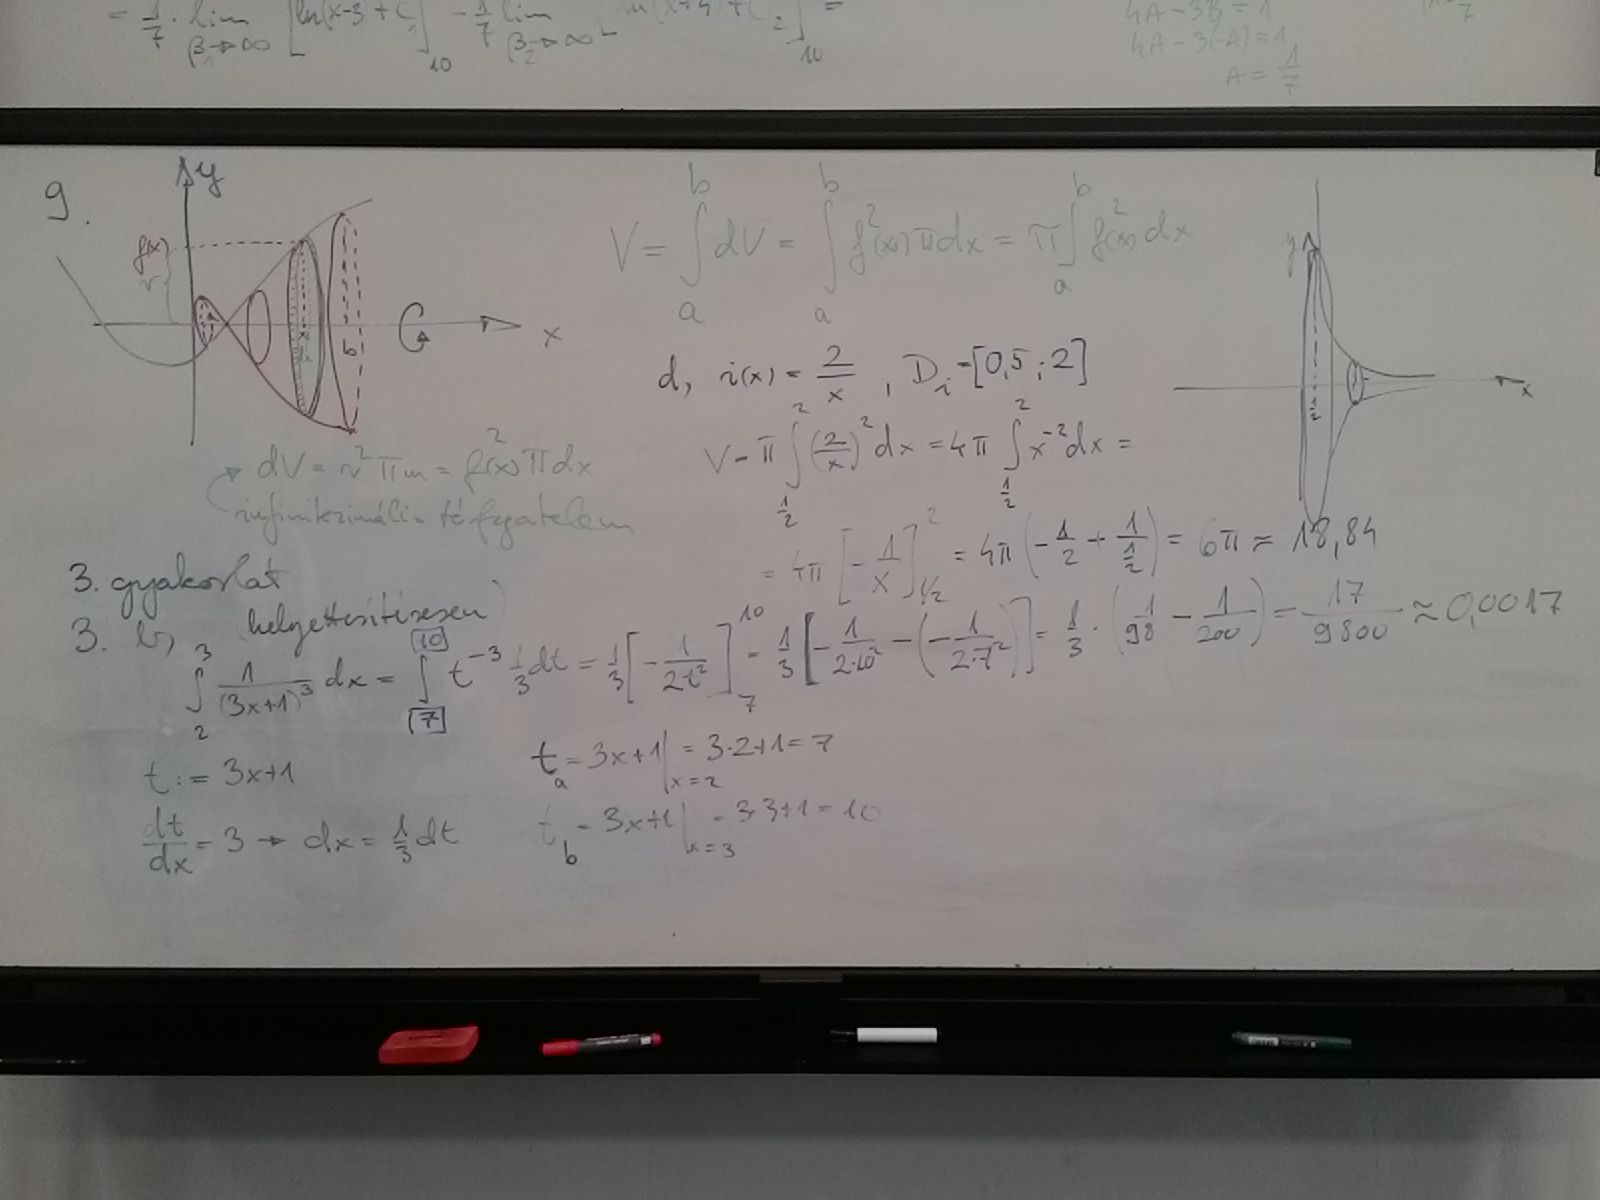 = 1/7 · lim β₁→∞ [ln(x-3+C₁]₁₀ - 1/7 lim β₂→∞ [ln(x+4)+C₂]₁₀ =
4A-3B=1
4A-3(-A)=1
A = 1/7
9.
y
f(x)
r
x
dx
b
x
dV = r²πm = f²(x)πdx
infinitezimális térfogatelem
V = ∫ₐᵇ dV = ∫ₐᵇ f²(x)πdx = π∫ₐᵇ f²(x)dx
d, i(x) = 2/x , Dᵢ=[0,5 ; 2]
V = π ∫_{1/2}^{2} (2/x)² dx = 4π ∫_{1/2}^{2} x⁻² dx =
= 4π [-1/x]_{1/2}^{2} = 4π (-1/2 + 1/(1/2)) = 6π ≈ 18,84
y
1/2
x
3. gyakorlat
3. b, (helyettesítésesen)
∫₂³ 1/(3x+1)³ dx = ∫_{[7]}^{[10]} t⁻³ 1/3 dt = 1/3 [-1/2t²]₇¹⁰ = 1/3 [-1/2·10² - (-1/2·7²)] = 1/3 · (1/98 - 1/200) = 17/9800 ≈ 0,0017
t := 3x+1
tₐ = 3x+1|ₓ₌₂ = 3·2+1 = 7
dt/dx = 3 → dx = 1/3 dt
t_b = 3x+1|ₓ₌₃ = 3·3+1 = 10